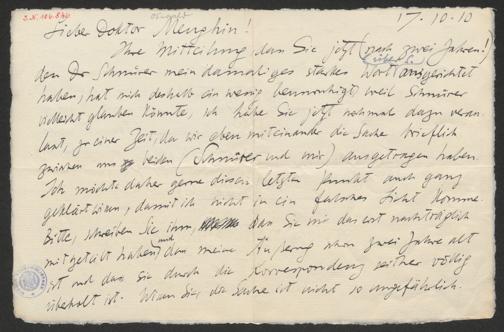 Z.N. 106.846
Oswald
17.10.10
Lieber Doktor Menghin!
Ihre Mitteilung, dass Sie jetzt (nach zwei Jahren!)
den Dr Schnürer mein damaliges starkes Wort ausgerichtet
haben, hat mich deshalb ein wenig beunruhigt, weil Schnürer
vielleicht glauben könnte, ich hätte Sie jetzt nochmal dazu veran-
lasst, zu einer Zeit, da wir eben miteinander die Sache brieflich
zwischen uns beiden (Schnürer und mir) ausgetragen haben.
Ich möchte daher gerne diesen letzten Punkt auch ganz
geklärt wissen, damit ich nicht in ein falsches Licht komme.
Bitte, schreiben Sie ihm, dass Sie mir das erst nachträglich
mitgeteilt haben, und dass meine Äußerung schon zwei Jahre alt
ist und dass sie durch die Korrespondenz seither völlig
überholt ist. Wissen Sie, die Sache ist nicht so ungefährlich.